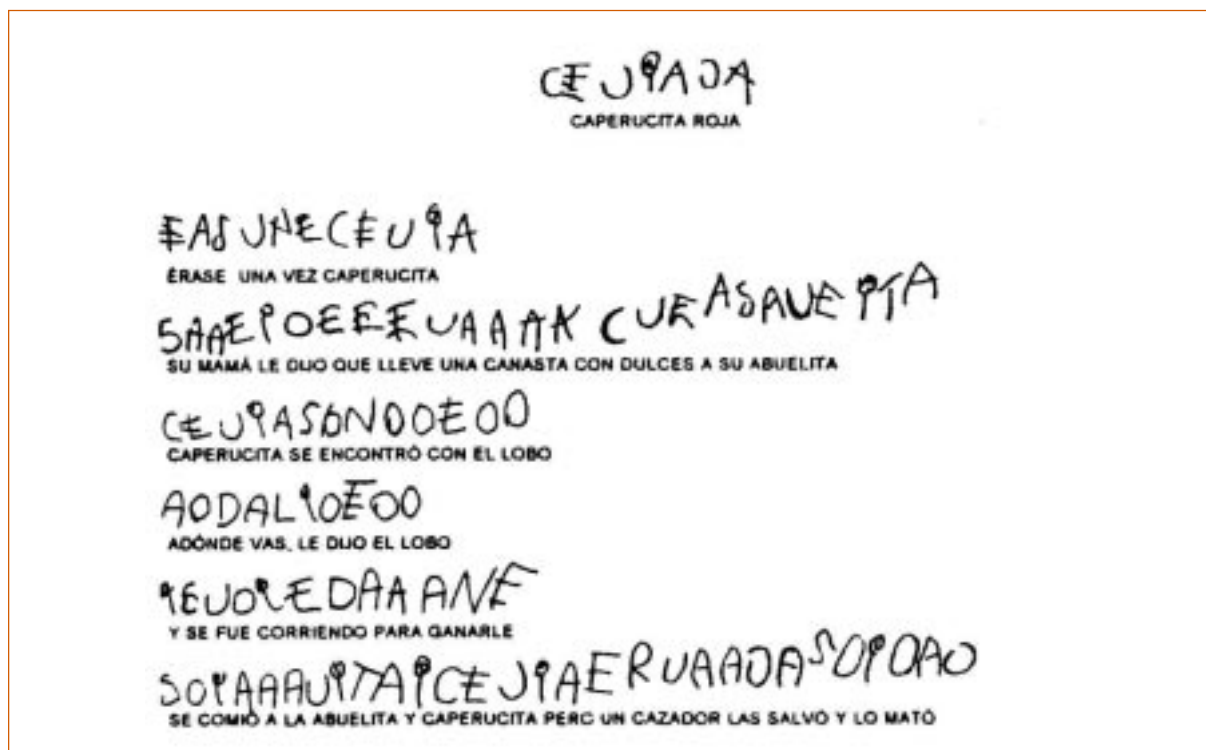 CEUIAJA
CAPERUCITA ROJA
EASUNECEUIA
ÉRASE UNA VEZ CAPERUCITA
SAAEIOEEEUAAAACUEASAUEITA
SU MAMÁ LE DIJO QUE LLEVE UNA CANASTA CON DULCES A SU ABUELITA
CEUIASONOOEOO
CAPERUCITA SE ENCONTRÓ CON EL LOBO
AODALIOEOO
ADÓNDE VAS, LE DIJO EL LOBO
IEUOIEDAAANE
Y SE FUE CORRIENDO PARA GANARLE
SOIAAAUITAICEUIAERUAAOASOIOAO
SE COMIÓ A LA ABUELITA Y CAPERUCITA PERO UN CAZADOR LAS SALVÓ Y LO MATÓ